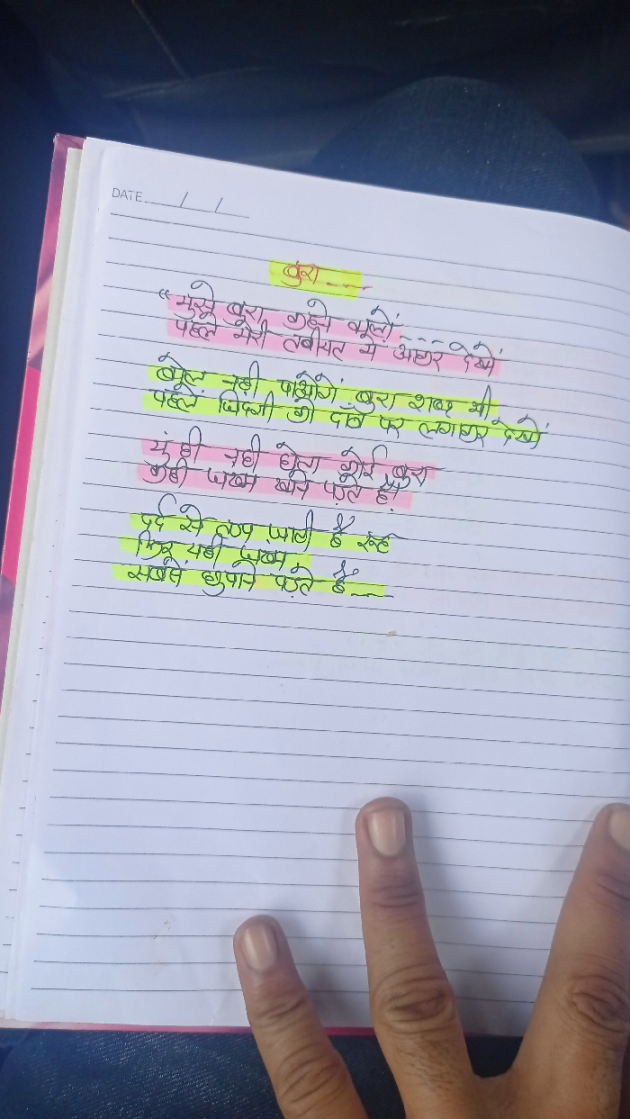 DATE
बुरा ----
“मुझे बुरा कहने वालों ----
पहले मेरी तबीयत में आकर देखो
बोल नही पाओगे बुरा शब्द भी
पहले जिंदगी को दाँव पर लगाकर देखों
यूं ही नही होता कोई बुरा
कही जख्म खाने पड़ते हैं
दर्द से तड़प जाती है रूह
फिर यही जख्म
सबसे छुपाने पड़ते है ----